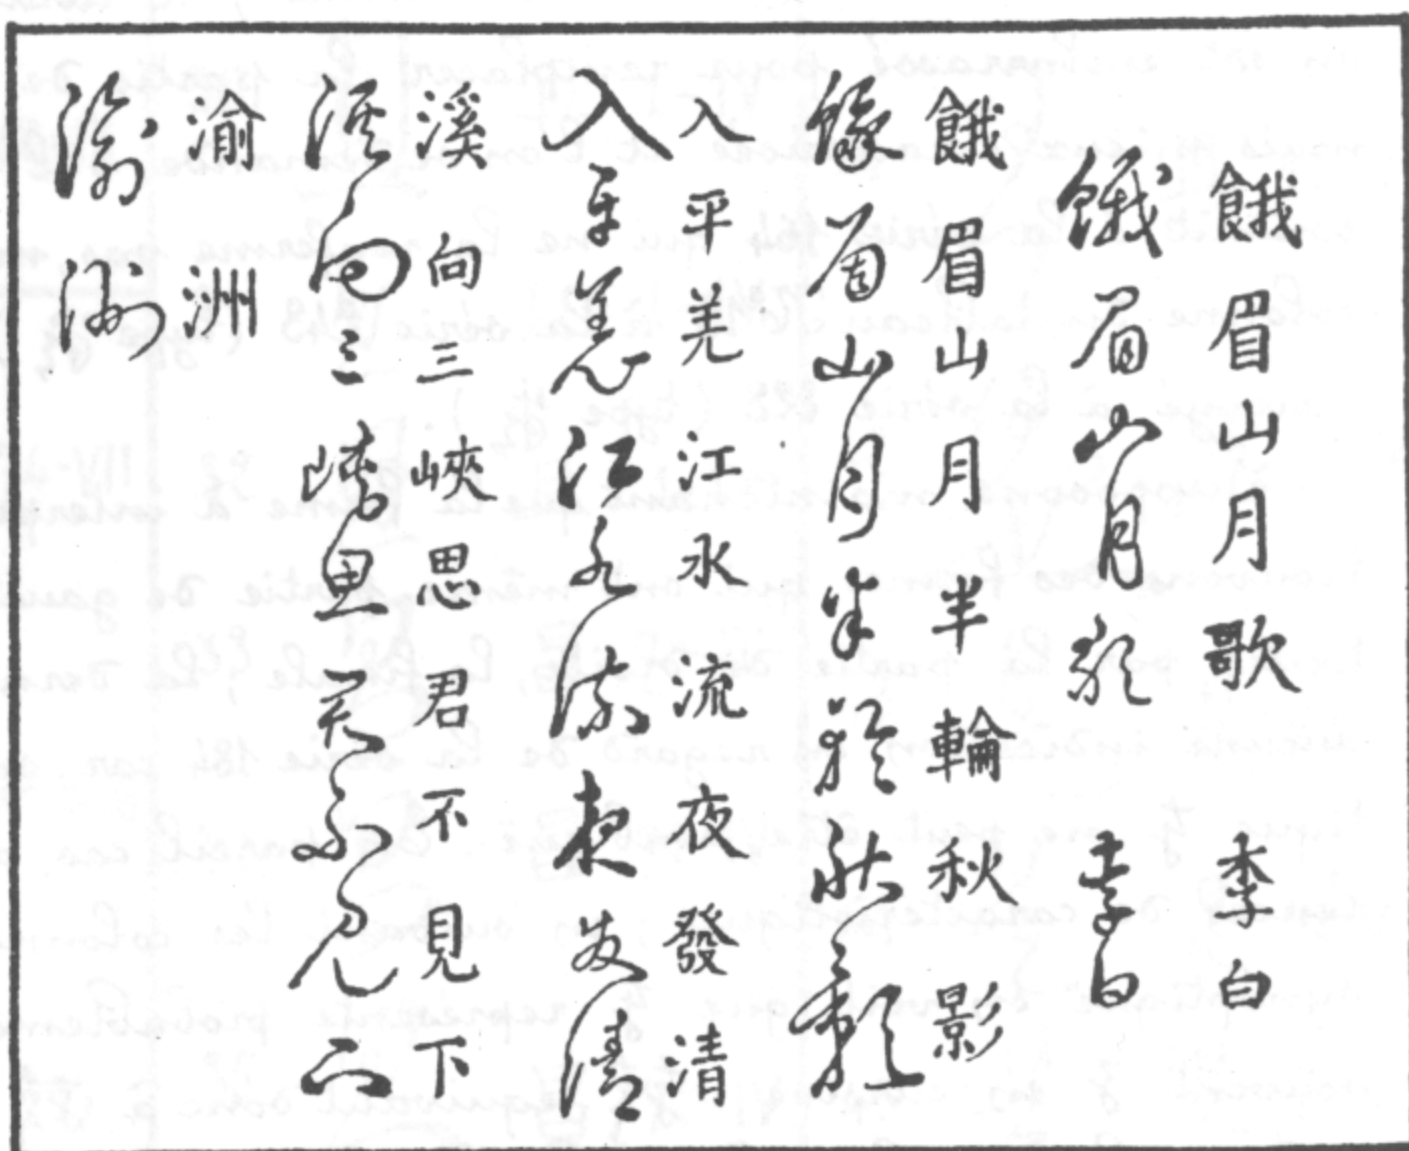 餓眉山月歌 李白
餓眉山月歌 李白
餓眉山月半輪秋影
餓眉山月半輪秋影
入平羌江水流夜發清
入平羌江水流夜發清
溪向三峽思君不見下
溪向三峽思君不見下
渝洲
渝洲